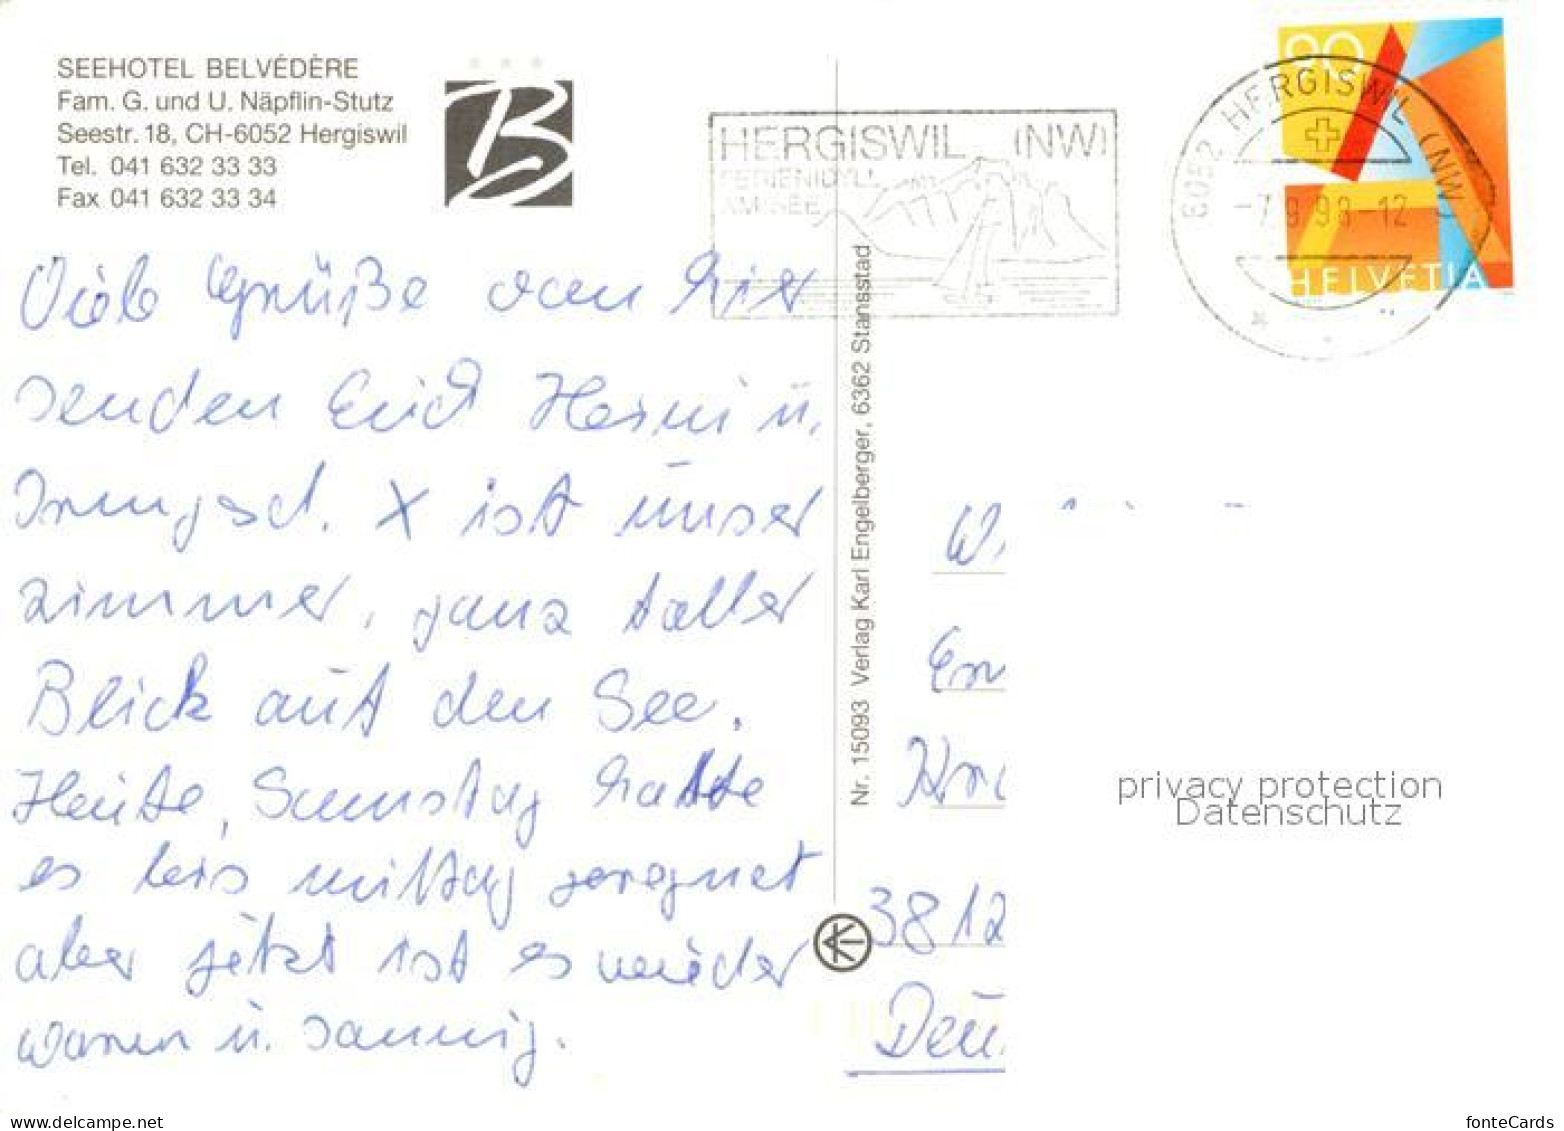 SEEHOTEL BELVÉDÈRE
Fam. G. und U. Näpflin-Stutz
Seestr. 18, CH-6052 Hergiswil
Tel. 041 632 33 33
Fax 041 632 33 34
B
HERGISWIL (NW)
FERIENIDYLL
AM SEE
6052 HERGISWIL (NW)
-7.9.98-12
90
HELVETIA
Viele Grüße von hier
senden Euch Heini u.
Irmgard. X ist unser
Zimmer, ganz toller
Blick auf den See.
Heute, Samstag hatte
es bis mittag geregnet
aber jetzt ist es wieder
warm u. sonnig.
Nr. 15093 Verlag Karl Engelberger, 6362 Stansstad
W
Em
Kra
3812
Deu
privacy protection
Datenschutz
www.delcampe.net
fonteCards